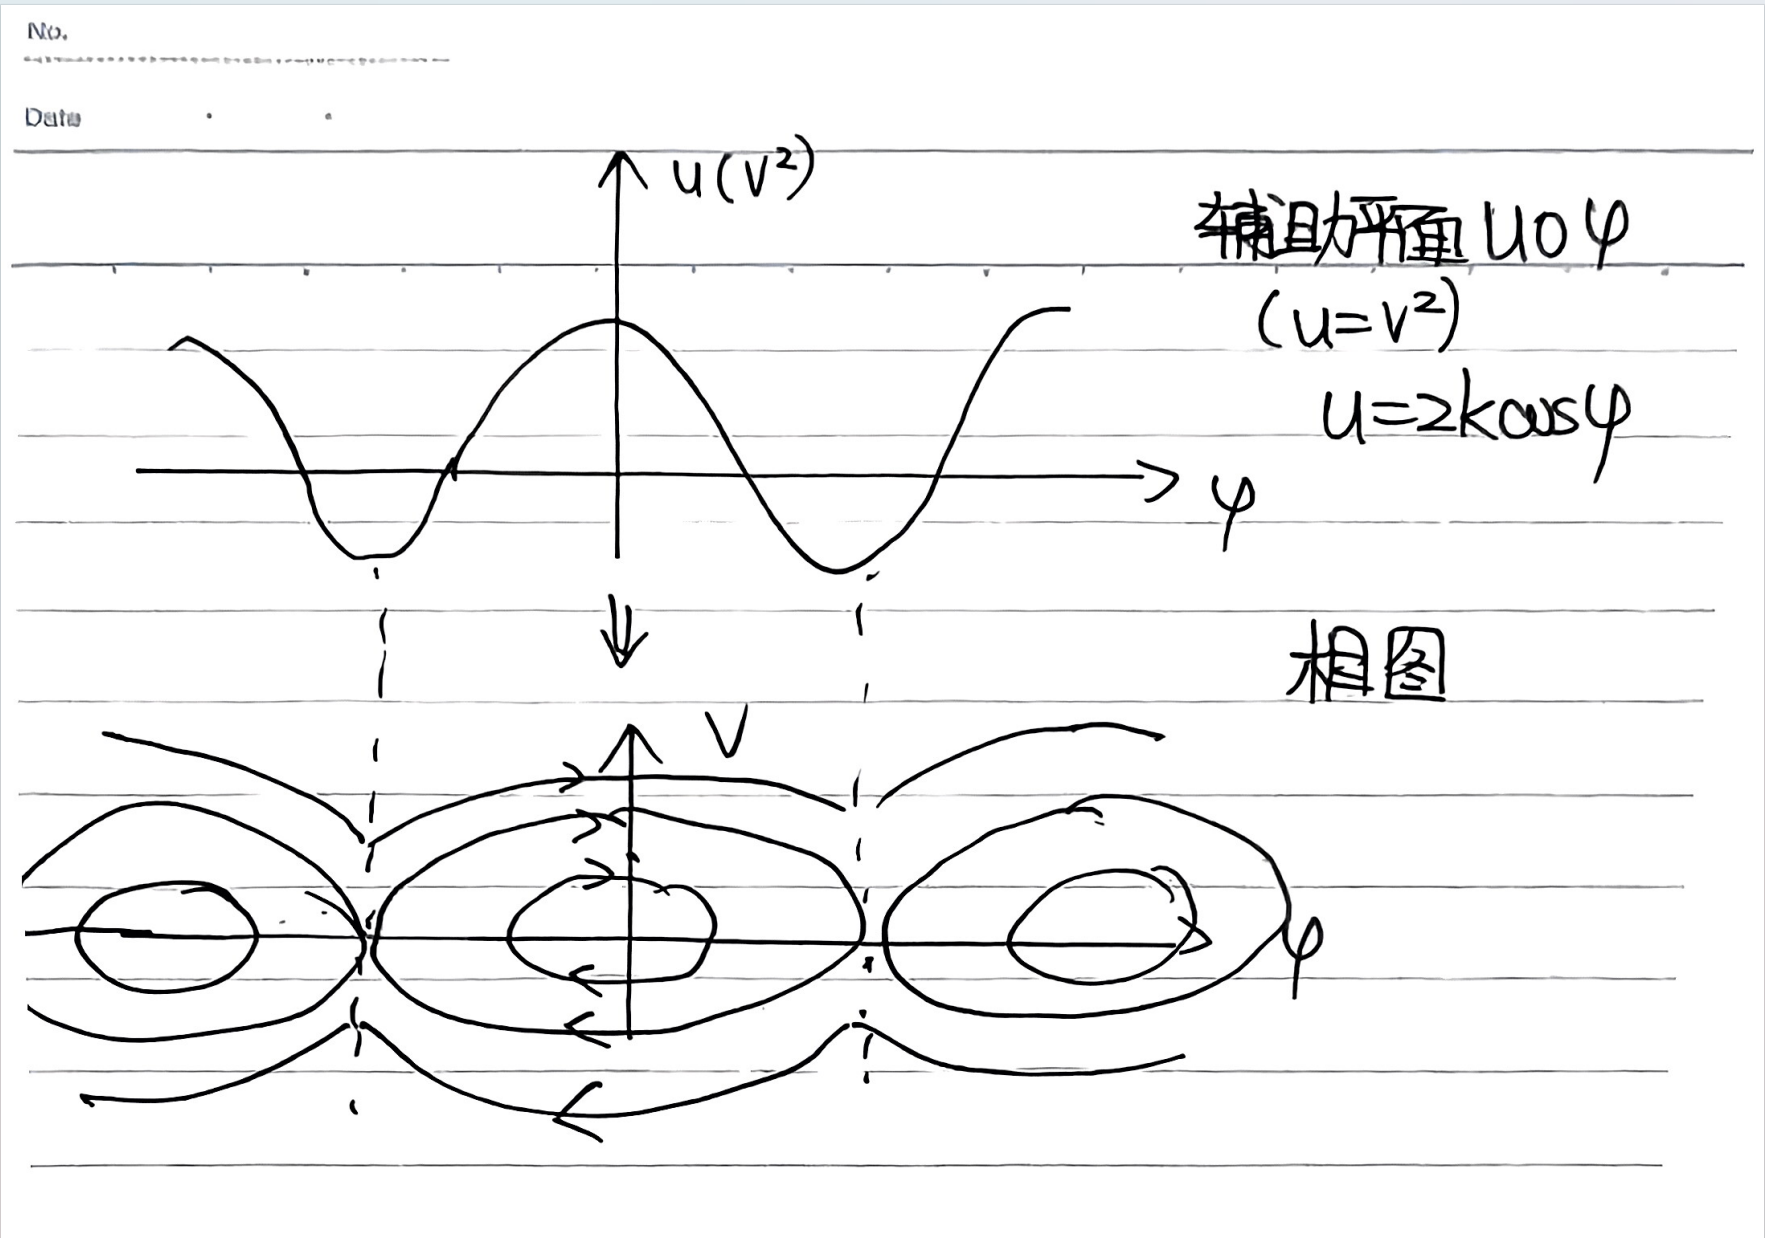 No.
Date
u(v²)
辅助平面 uoφ
(u=v²)
u=2kcosφ
φ
相图
v
φ